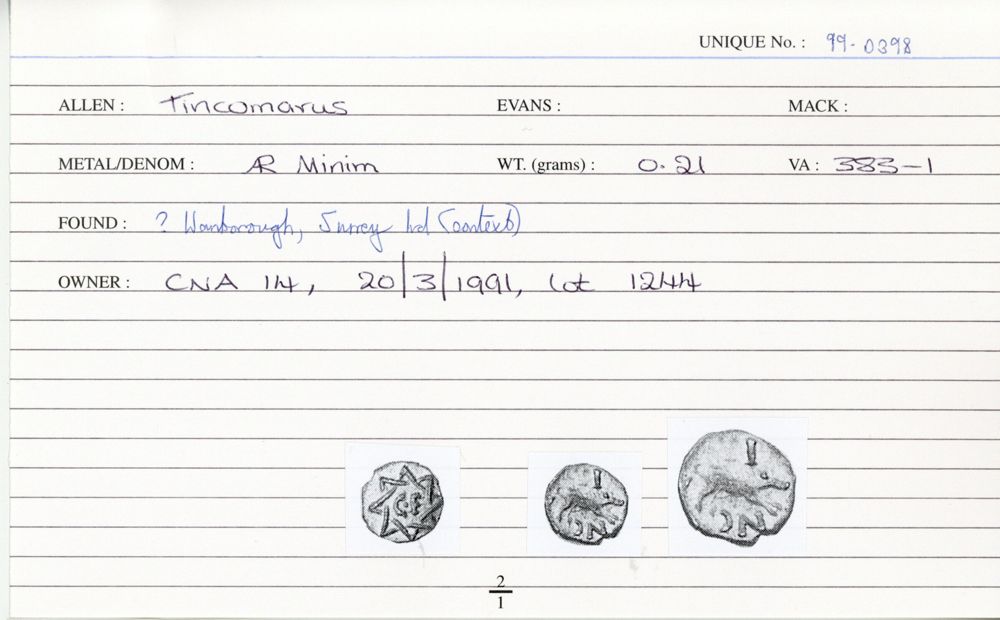 UNIQUE No. : 99-0398
ALLEN : Tincomarus EVANS : MACK :
METAL/DENOM : AR Minim WT. (grams) : 0.21 VA : 383-1
FOUND : ? Wanborough, Surrey hd (context)
OWNER : CNA 14, 20/3/1991, lot 1244
2
1